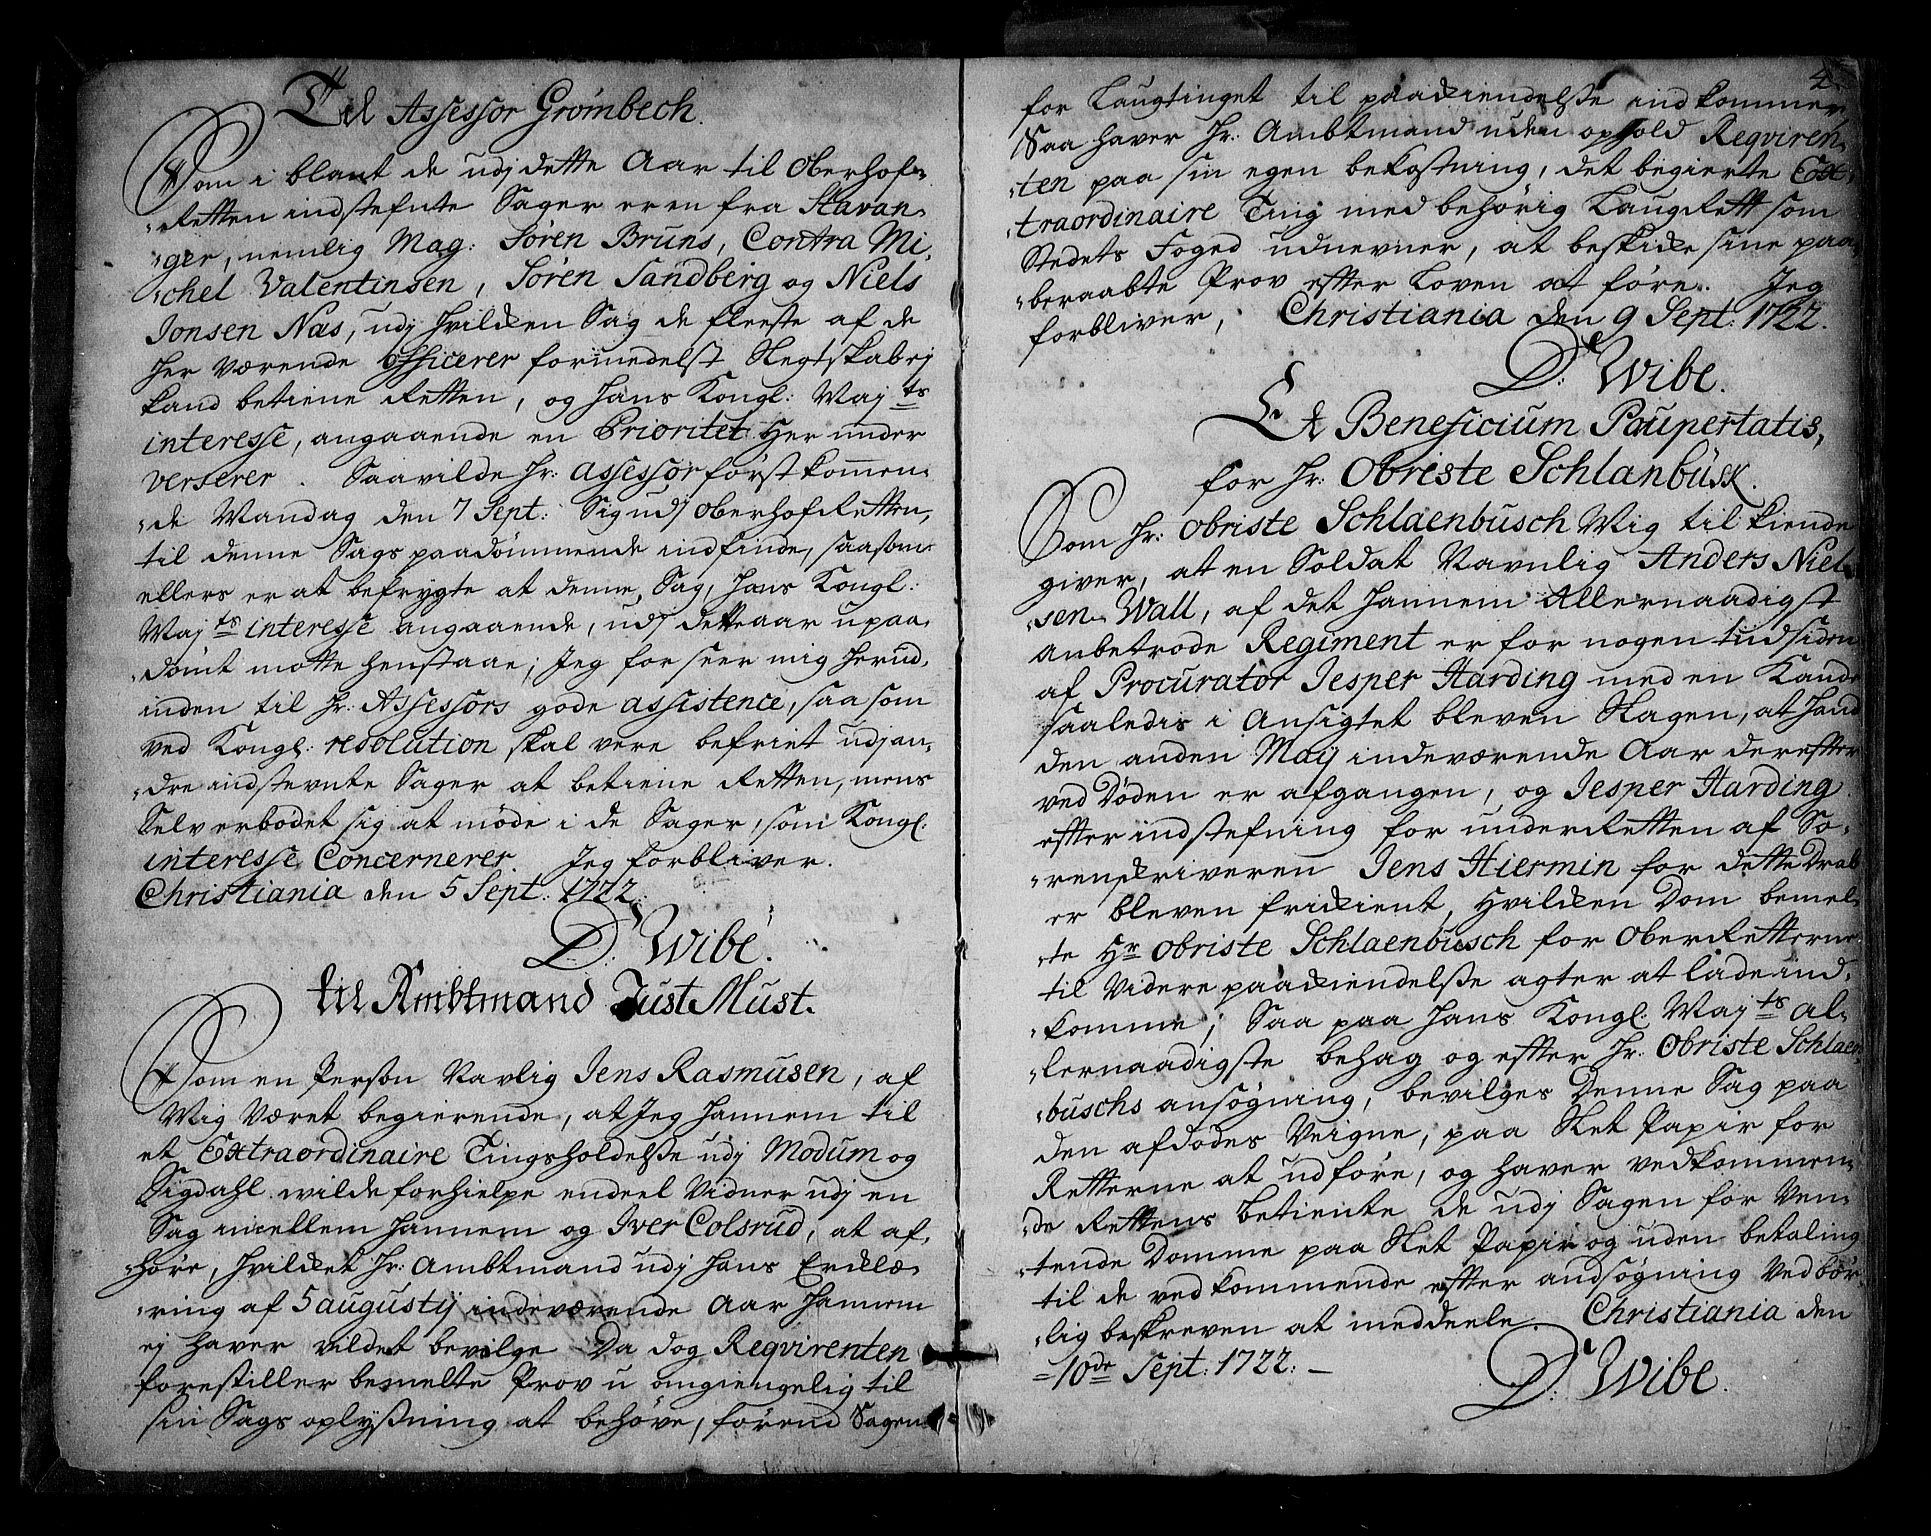 Til Assessor Grømbech.
Som i blant de udj dette Aar til Oberhof-
Retten indstefnte Sager er en fra Stavan-
ger, nemlig Mag: Søren Bruns, Contra Mi-
chel Valentinsen, Søren Sandberg og Niels
Jonsen Nas, udj hvilcken Sag de fleeste af de
her værende officerer formedelst Slegtskab ej
kand betiene Retten, og Hans Kongl: May ts
interesse, angaaende en Prioritet her under
verserer. Saa vilde Hr: assessor først kommen-
de Mandag den 7 Sept: Sig udj Oberhof Retten,
til denne Sags paadømmende indfinde, saasom
ellers er at befrygte at denne Sag, Hans Kongl:
May ts interesse angaaende, udj dette aar upaa-
dømt motte henstaae; Jeg forseer mig herud-
inden til Hr: Assessors gode assistence, saa som
ved Kongl: resolution skal vere befriet udj an-
dre indstevnte Sager at betiene Retten, mens
Selv erbødet sig at møde i de Sager, som Kongl:
interesse Concernerer Jeg forbliver.
Christiania den 5 Sept: 1722.
D: Wibe.
til Ambtmand Just Must.
Som en Person Navnlig Jens Rasmusen, af
Mig Været begierende, at Jeg Hannem til
et Extraordinaire Tingsholdelse udj Modum og
Sigdahl wilde forhielpe endeel Vidner udj en
Sag imellem Hannem og Iver Colsrud, at af-
høre, hvilcket Hr: Ambtmand udj Hans Erclæ-
ring af 5 augustij indeværende Aar Hannem
ej haver vildet bevilge Da dog Reqvirenten
forestiller bemelte Prov u omgiengelig til
sin Sags oplyssning at behøve, førend Sagen
4
for Laugtinget til paakiendelsse ind kommer,
Saa haver Hr: Ambtmand uden ophold Reqviren-
ten paa sin egen bekostning, det begierte Ex-
traordinaire Ting med behørig Laug Rett som
Stedets Foged udnevner, at beskicke sine paa-
beraabte Prov efter Loven at føre. Jeg
forbliver, Christiania den 9 Sept: 1722.
D: Wibe.
Et Beneficium Paupertatis,
for Hr: Obriste Schlanbusk.
Som Hr: Obriste Schlaenbusch Mig til kiende
giver, at en Soldat Navnlig Anders Niel-
sen Wall, af det Hannem Allernaadigst
anbetrode Regiment er for nogen tid siden
af Procurator Jesper Harding med en Kande
saaledis i Ansigtet bleven Slagen, at Hand
den anden Maÿ indeværende Aar derefter
ved Døden er afgangen, og Jesper Harding
efter indstefning for underRetten af So-
renskriveren Jens Hiermin for dette Drab
er bleven frikient, Hvilcken Dom bemel-
te Hr Obriste Schlaenbusch for OberRetterne
til Videre paakiendelsse agter at lade ind-
komme; Saa paa Hans Kongl: May ts al-
lernaadigste behag og efter Hr: Obriste Schlaen-
buschs ansøgning, bevilges Denne Sag paa
den afdødes Veigne, paa Slet Papir for
Retterne at udføre, og haver vedkommen-
de Rettens Betiente de udj Sagen for Ven-
tende Domme paa Slet Papir og uden betaling
til de vedkommende efter andsøgning Ved bør-
lig beskreven at meddeele. Christiania den
10de Sept: 1722.
D: Wibe.